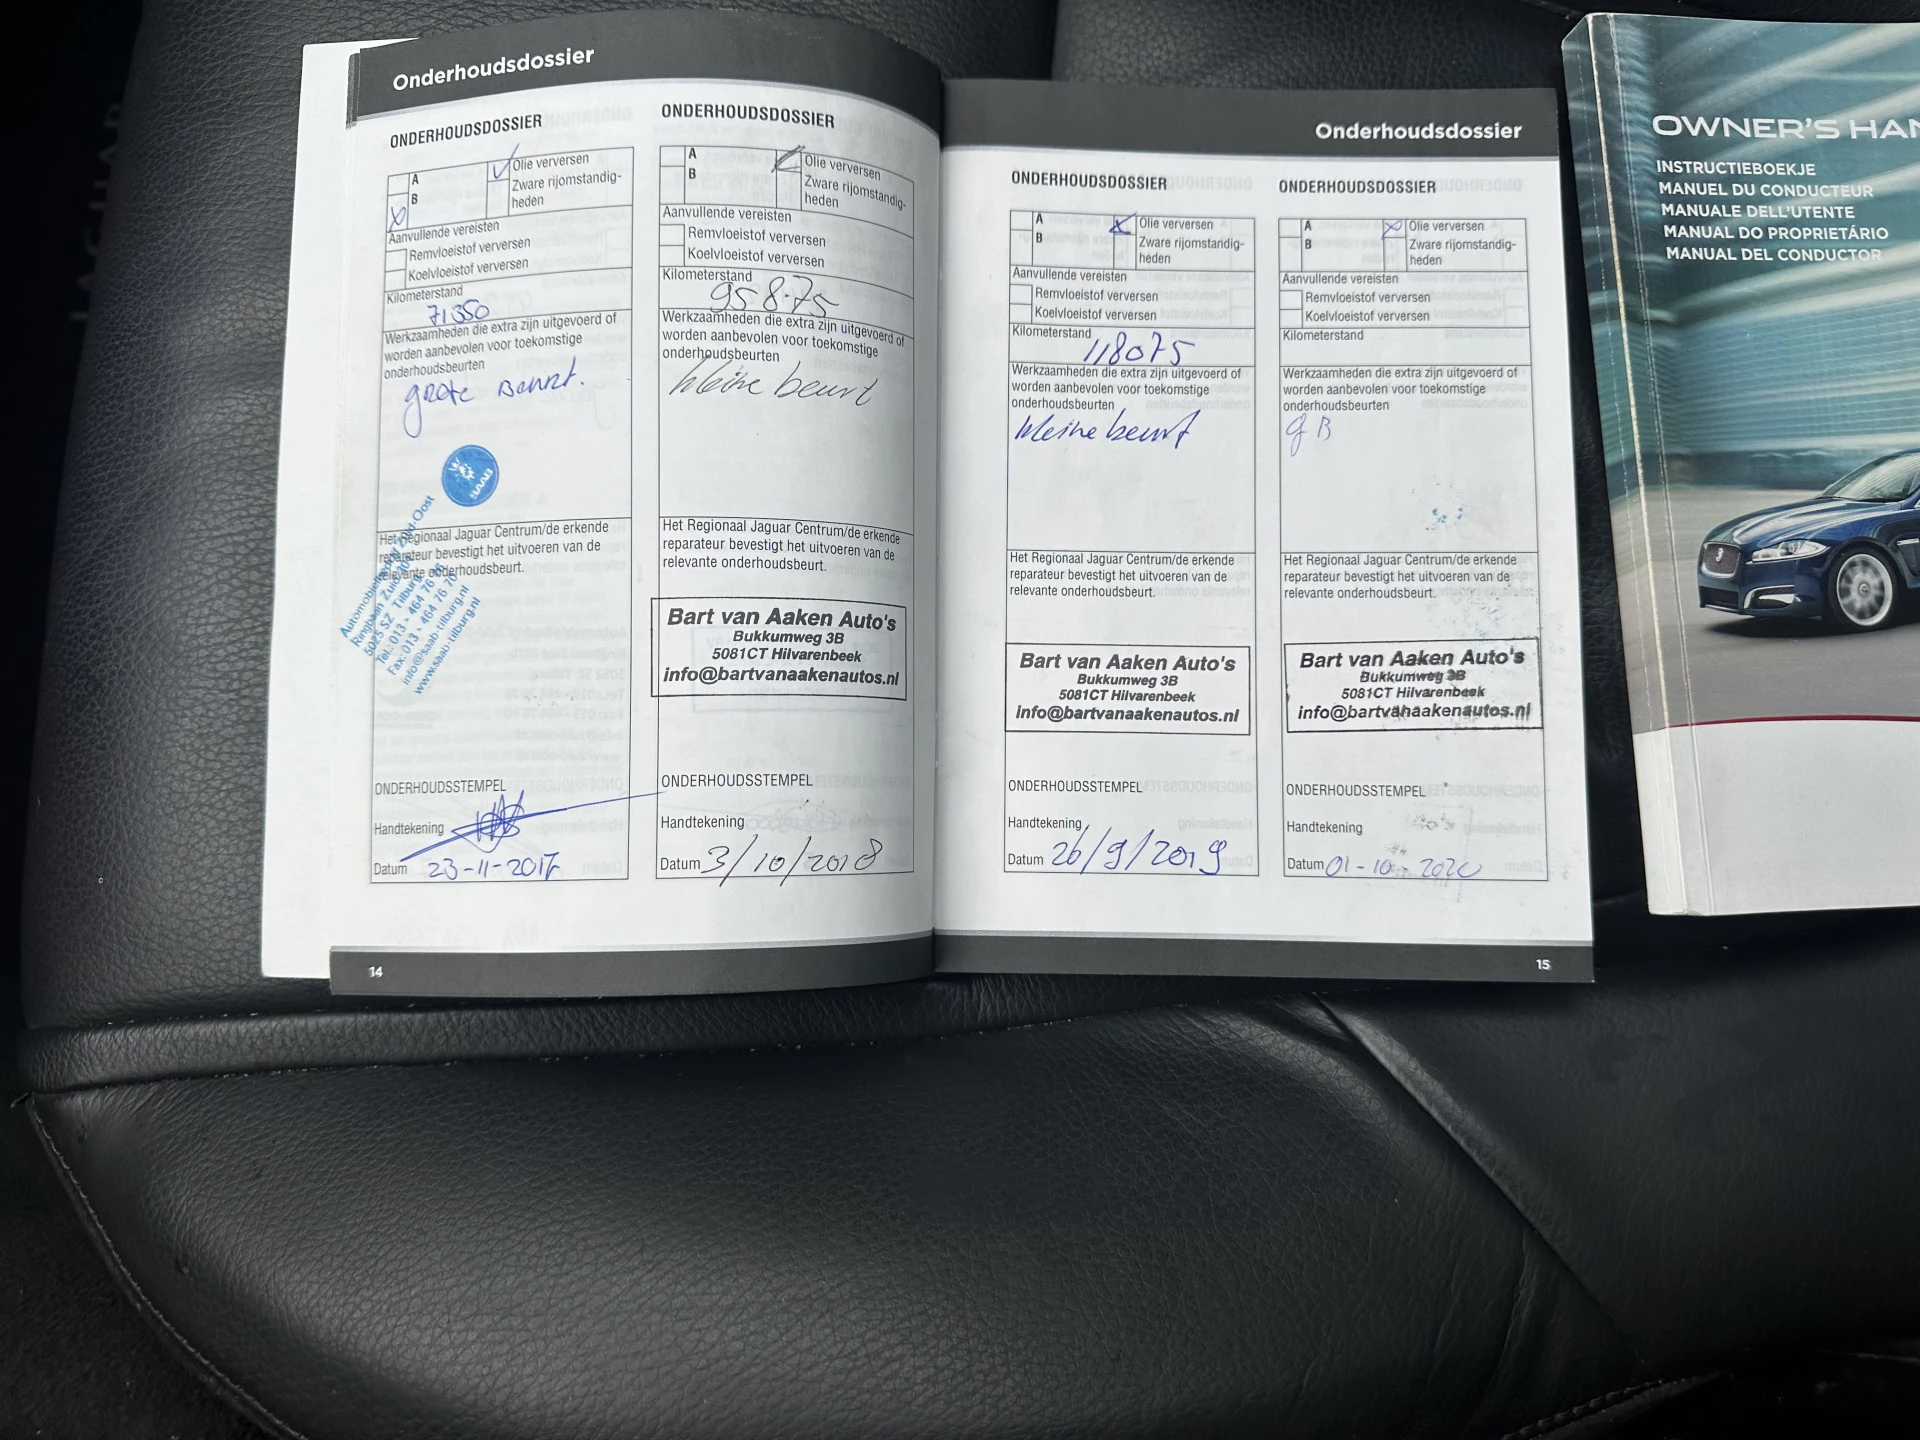 Onderhoudsdossier
ONDERHOUDSDOSSIER
A
B
Olie verversen
Zware rijomstandig-
heden
Aanvullende vereisten
Remvloeistof verversen
Koelvloeistof verversen
Kilometerstand
71350
Werkzaamheden die extra zijn uitgevoerd of
worden aanbevolen voor toekomstige
onderhoudsbeurten
grote Beurt.
Het Regionaal Jaguar Centrum/de erkende
reparateur bevestigt het uitvoeren van de
relevante onderhoudsbeurt.
Automobielbedrijf Zuid-Oost
Ringbaan Zuid
5025 SZ Tilburg
Tel.: 013 - 464 76 76
Fax: 013 - 464 76 70
info@saab-tilburg.nl
www.saab-tilburg.nl
ONDERHOUDSSTEMPEL
Handtekening
Datum 23-11-2017
14
ONDERHOUDSDOSSIER
A
B
Olie verversen
Zware rijomstandig-
heden
Aanvullende vereisten
Remvloeistof verversen
Koelvloeistof verversen
Kilometerstand
95875
Werkzaamheden die extra zijn uitgevoerd of
worden aanbevolen voor toekomstige
onderhoudsbeurten
kleine beurt
Het Regionaal Jaguar Centrum/de erkende
reparateur bevestigt het uitvoeren van de
relevante onderhoudsbeurt.
Bart van Aaken Auto's
Bukkumweg 3B
5081CT Hilvarenbeek
info@bartvanaakenautos.nl
ONDERHOUDSSTEMPEL
Handtekening
Datum 3/10/2018
Onderhoudsdossier
ONDERHOUDSDOSSIER
A
B
Olie verversen
Zware rijomstandig-
heden
Aanvullende vereisten
Remvloeistof verversen
Koelvloeistof verversen
Kilometerstand
118075
Werkzaamheden die extra zijn uitgevoerd of
worden aanbevolen voor toekomstige
onderhoudsbeurten
kleine beurt
Het Regionaal Jaguar Centrum/de erkende
reparateur bevestigt het uitvoeren van de
relevante onderhoudsbeurt.
Bart van Aaken Auto's
Bukkumweg 3B
5081CT Hilvarenbeek
info@bartvanaakenautos.nl
ONDERHOUDSSTEMPEL
Handtekening
Datum 26/9/2019
ONDERHOUDSDOSSIER
A
B
Olie verversen
Zware rijomstandig-
heden
Aanvullende vereisten
Remvloeistof verversen
Koelvloeistof verversen
Kilometerstand
Werkzaamheden die extra zijn uitgevoerd of
worden aanbevolen voor toekomstige
onderhoudsbeurten
gB
Het Regionaal Jaguar Centrum/de erkende
reparateur bevestigt het uitvoeren van de
relevante onderhoudsbeurt.
Bart van Aaken Auto's
Bukkumweg 3B
5081CT Hilvarenbeek
info@bartvanaakenautos.nl
ONDERHOUDSSTEMPEL
Handtekening
Datum 01-10-2020
15
OWNER'S HAN
INSTRUCTIEBOEKJE
MANUEL DU CONDUCTEUR
MANUALE DELL'UTENTE
MANUAL DO PROPRIETÁRIO
MANUAL DEL CONDUCTOR